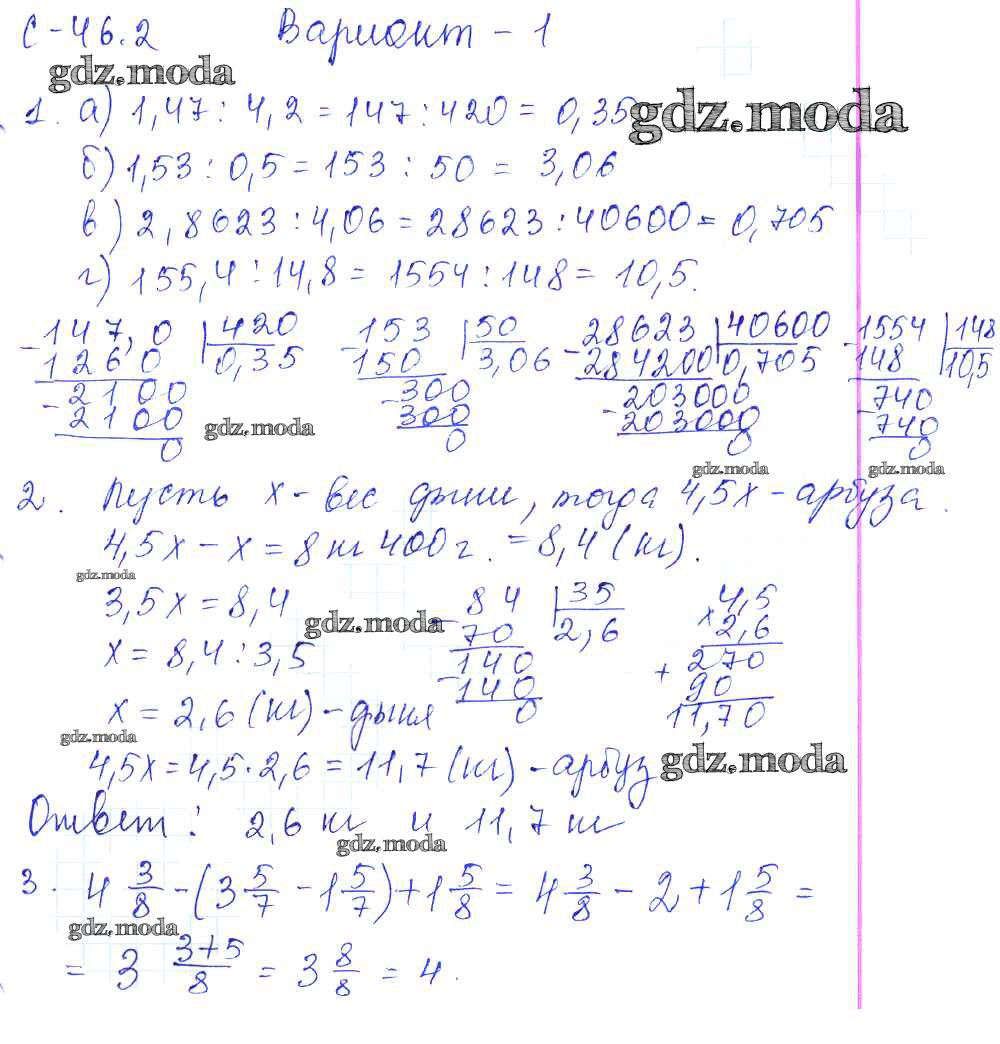 С-46.2 Вариант - 1
gdz.moda
1. а) 1,47 : 4,2 = 147 : 420 = 0,35
gdz.moda
б) 1,53 : 0,5 = 153 : 50 = 3,06
в) 2,8623 : 4,06 = 28623 : 40600 = 0,705
г) 155,4 : 14,8 = 1554 : 148 = 10,5.
-147,0 | 420 -153 | 50 -28623 | 40600 -1554 | 148
1260 0,35 150 3,06 284200 0,705 148 10,5
-2100 -300 -203000 -740
2100 300 203000 740
0 0 0 0
gdz.moda gdz.moda gdz.moda
2. Пусть х - вес дыни, тогда 4,5х - арбуза.
4,5х - х = 8 кг 400 г. = 8,4 (кг).
gdz.moda
3,5х = 8,4 -84 | 35 × 4,5
gdz.moda 70 2,6 2,6
х = 8,4 : 3,5 -140 + 270
140 90
х = 2,6 (кг) - дыня 0 11,70
gdz.moda
4,5х = 4,5 · 2,6 = 11,7 (кг) - арбуз
gdz.moda
Ответ: 2,6 кг и 11,7 кг
gdz.moda
3. 4 3/8 - (3 5/7 - 1 5/7) + 1 5/8 = 4 3/8 - 2 + 1 5/8 =
gdz.moda
= 3 3+5/8 = 3 8/8 = 4.